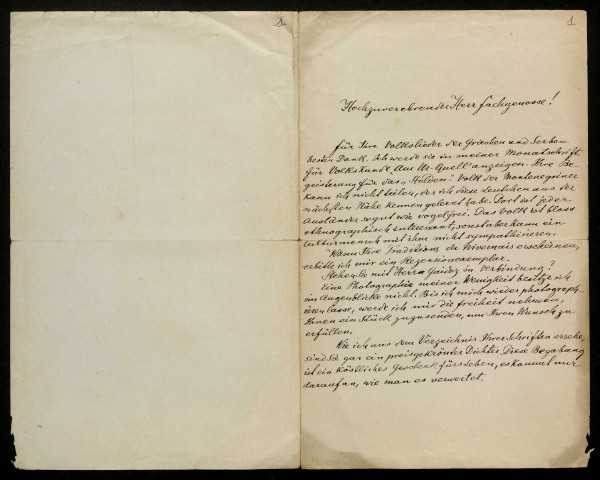 1
1
Hochzuverehrender Herr Fachgenosse!
Für Ihre Volkslieder der Griechen und Serben
besten Dank. Ich werde sie in meiner Monatschrift
für Volkskunde „Am Ur-Quell“ anzeigen. Ihre Be-
geisterung für das „Helden“ Volk der Montenegriner
kann ich nicht teilen, der ich diese Leutchen aus der
nächsten Nähe kennen gelernt habe. Dort ist jeder
Ausländer so gut wie vogelfrei. Das Volk ist bloss
ethnographisch interessant, sonst aber kann ein
Culturmensch mit ihm nicht sympathisieren.
Wann Ihre Traditions du Nivernais erscheinen,
erbitte ich mir ein Rezensionexemplar.
Stehen Sie mit Herrn Gaidoz in Verbindung?
Eine Photographie meiner Wenigkeit besitze ich
im Augenblicke nicht. Bis ich mich wieder photograph-
ieren lasse, werde ich mir die Freiheit nehmen,
Ihnen ein Stück zuzusenden, um Ihren Wunsch zu
erfüllen.
Wie ich aus dem Verzeichnis Ihrer Schriften ersehe,
sind Sie gar ein preisgekrönter Dichter. Diese Begabung
ist ein köstliches Geschenk fürs Leben, es kommt nur
darauf an, wie man es verwertet.